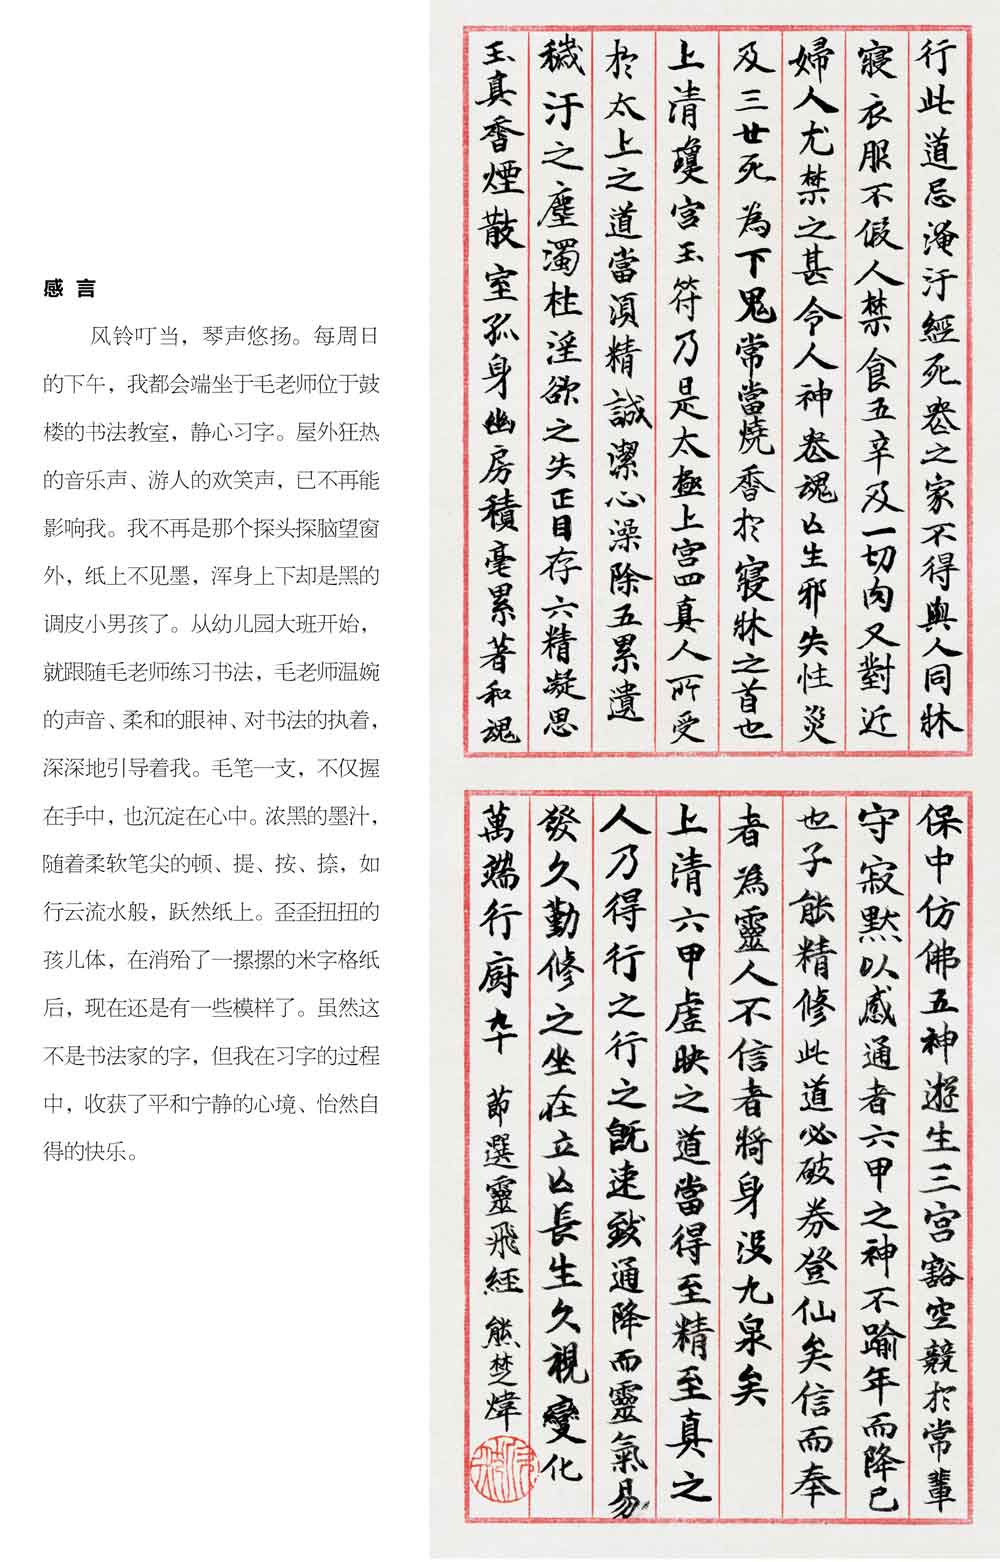 感言
风铃叮当，琴声悠扬。每周日
的下午，我都会端坐于毛老师位于鼓
楼的书法教室，静心习字。屋外狂热
的音乐声、游人的欢笑声，已不再能
影响我。我不再是那个探头探脑望窗
外，纸上不见墨，浑身上下却是黑的
调皮小男孩了。从幼儿园大班开始，
就跟随毛老师练习书法，毛老师温婉
的声音、柔和的眼神、对书法的执着，
深深地引导着我。毛笔一支，不仅握
在手中，也沉淀在心中。浓黑的墨汁，
随着柔软笔尖的顿、提、按、捺，如
行云流水般，跃然纸上。歪歪扭扭的
孩儿体，在消殆了一摞摞的米字格纸
后，现在还是有一些模样了。虽然这
不是书法家的字，但我在习字的过程
中，收获了平和宁静的心境、怡然自
得的快乐。
行此道忌淹汙經死丧之家不得與人同牀
寢衣服不假人禁食五辛及一切肉又對近
婦人尤禁之甚令人神丧魂亾生邪失性災
及三世死為下鬼常當燒香於寢牀之首也
上清瓊宮玉符乃是太極上宮四真人所受
於太上之道當須精誠潔心澡除五累遺
穢汙之塵濁杜淫欲之失正目存六精凝思
玉真香煙散室孤身幽房積毫累著和魂
保中仿佛五神遊生三宮豁空競於常輩
守寂默以感通者六甲之神不踰年而降已
也子能精修此道必破券登仙矣信而奉
者為靈人不信者將身没九泉矣
上清六甲虛映之道當得至精至真之
人乃得行之行之既速致通降而靈氣易
發久勤修之坐在立亾長生久視變化
萬端行廚九千 節選靈飛經 熊楚煒